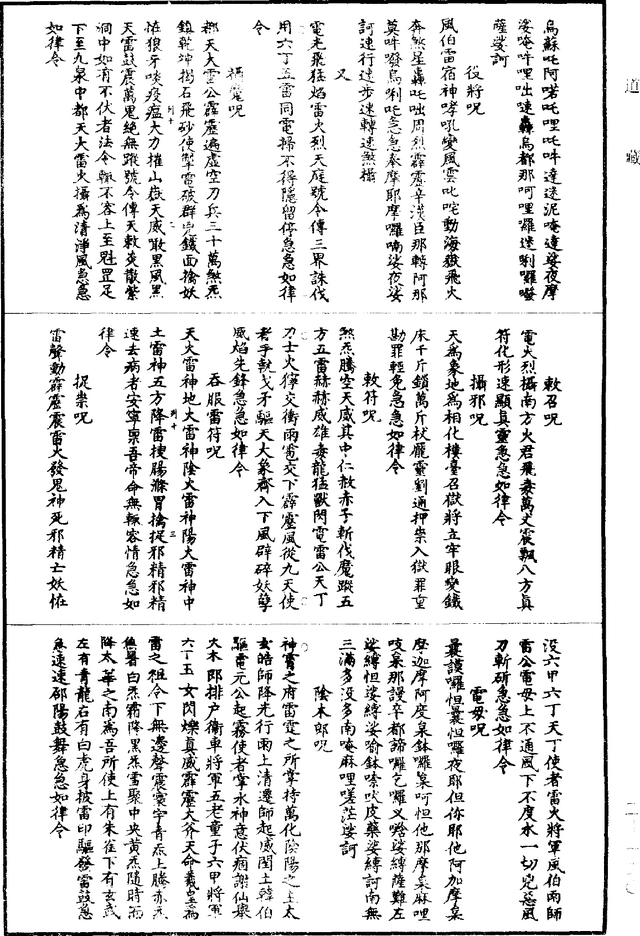 道藏
烏蘇吒阿喏吒哩吒吽達迷泥唵達娑夜摩
娑唵吽哩咄達轟烏都那呵哩囉迷唎囉
薩娑訶
役將呪
風伯雷宿神哮吼變風雲叱咤動海嶽飛火
奔煞星轟吒咄周烈霹靂辛漢臣那轉阿那
莫吽發烏唎吒急急奉摩耶摩囉喃娑夜娑
訶速行速步速轉速煞攝
又
電光飛猛焰雷火烈天庭號令傳三界誅伐
用六丁五雷同電掃不得隱留停急急如律
令
攝魔呪
都天大雷公霹靂遍虛空刀兵三十萬煞炁
鎮乾坤擲石飛砂使掣電破群兇鐵面擒妖
怪狼牙啖疫瘟大力摧山嶽天威噉黑風黑
天雷鼓震萬鬼絕無蹤號令傳天敕炎散紫
洞中如有不伏者法令輒不容上至魁罡足
下至九泉中都天大雷火攝為清淨風急急
如律令
敕召呪
電火烈攝南方火君飛奏萬丈震飄八方真
符化形速顯真靈急急如律令
攝邪呪
天為象地為相化樓臺召獄將立牢眼變鐵
床千斤鎖萬斤杖龐靈劉通押祟入獄罪重
勘罪輕免急急如律令
敕符呪
煞炁騰空天威其中仁赦赤子斬伐魔蹤五
方五雷赫赫威雄毒龍猛獸閃電雷公天丁
刀士火獰交衝雨電交下霹靂風從九天使
者手執戈矛驅天大象齊入下風碎妖孽
威焰先鋒急急如律令
吞服雷符呪
天火雷神地火雷神陰火雷神陽火雷神中
土雷神五方降雷梗腸滌胃擒捉邪精邪精
速去病者安寧稟吾帝命無輒容情急急如
律令
捉祟呪
雷聲動霹靂震雷火發鬼神死邪精亡妖怪
沒六甲六丁天丁使者雷火將軍風伯雨師
雷公電母上不通風下不度水一切兇惡風
刀斬斫急急如律令
電母呪
曩謨囉怛曩怛囉夜耶但你耶他阿加摩枲
摩迦摩阿度枲鉢囉枲呵怛他那摩枲麻哩
唆枲那謾辛都諦囉乞囉义娑縛薩難左
娑縛怛娑縛娑喻鉢嗦吠皮藥娑縛訶南無
三滿多没多南唵麻哩嗟茫娑訶
陰木郎呪
神霄之府雷霆之所掌持萬化陰陽之主太
玄皓師降先行雨上清遷師起威閏土韓伯
驅電元公起霧使者掌水神意伏痼謝仙
大木郎排戶衛車將軍五老童子六甲將軍
六丁五女閃爍真威霹靂大斧天命義皇為
雷之祖令下無邊聲震寰宇青炁上騰赤炁
白炁霜降黑炁雪聚中央黃炁隨時而
降太華之南為吾所使上有朱雀下有玄武
左有青龍右有白虎身披雷印驅發雷鼓急
急速速邵陽鼓舞急急如律令